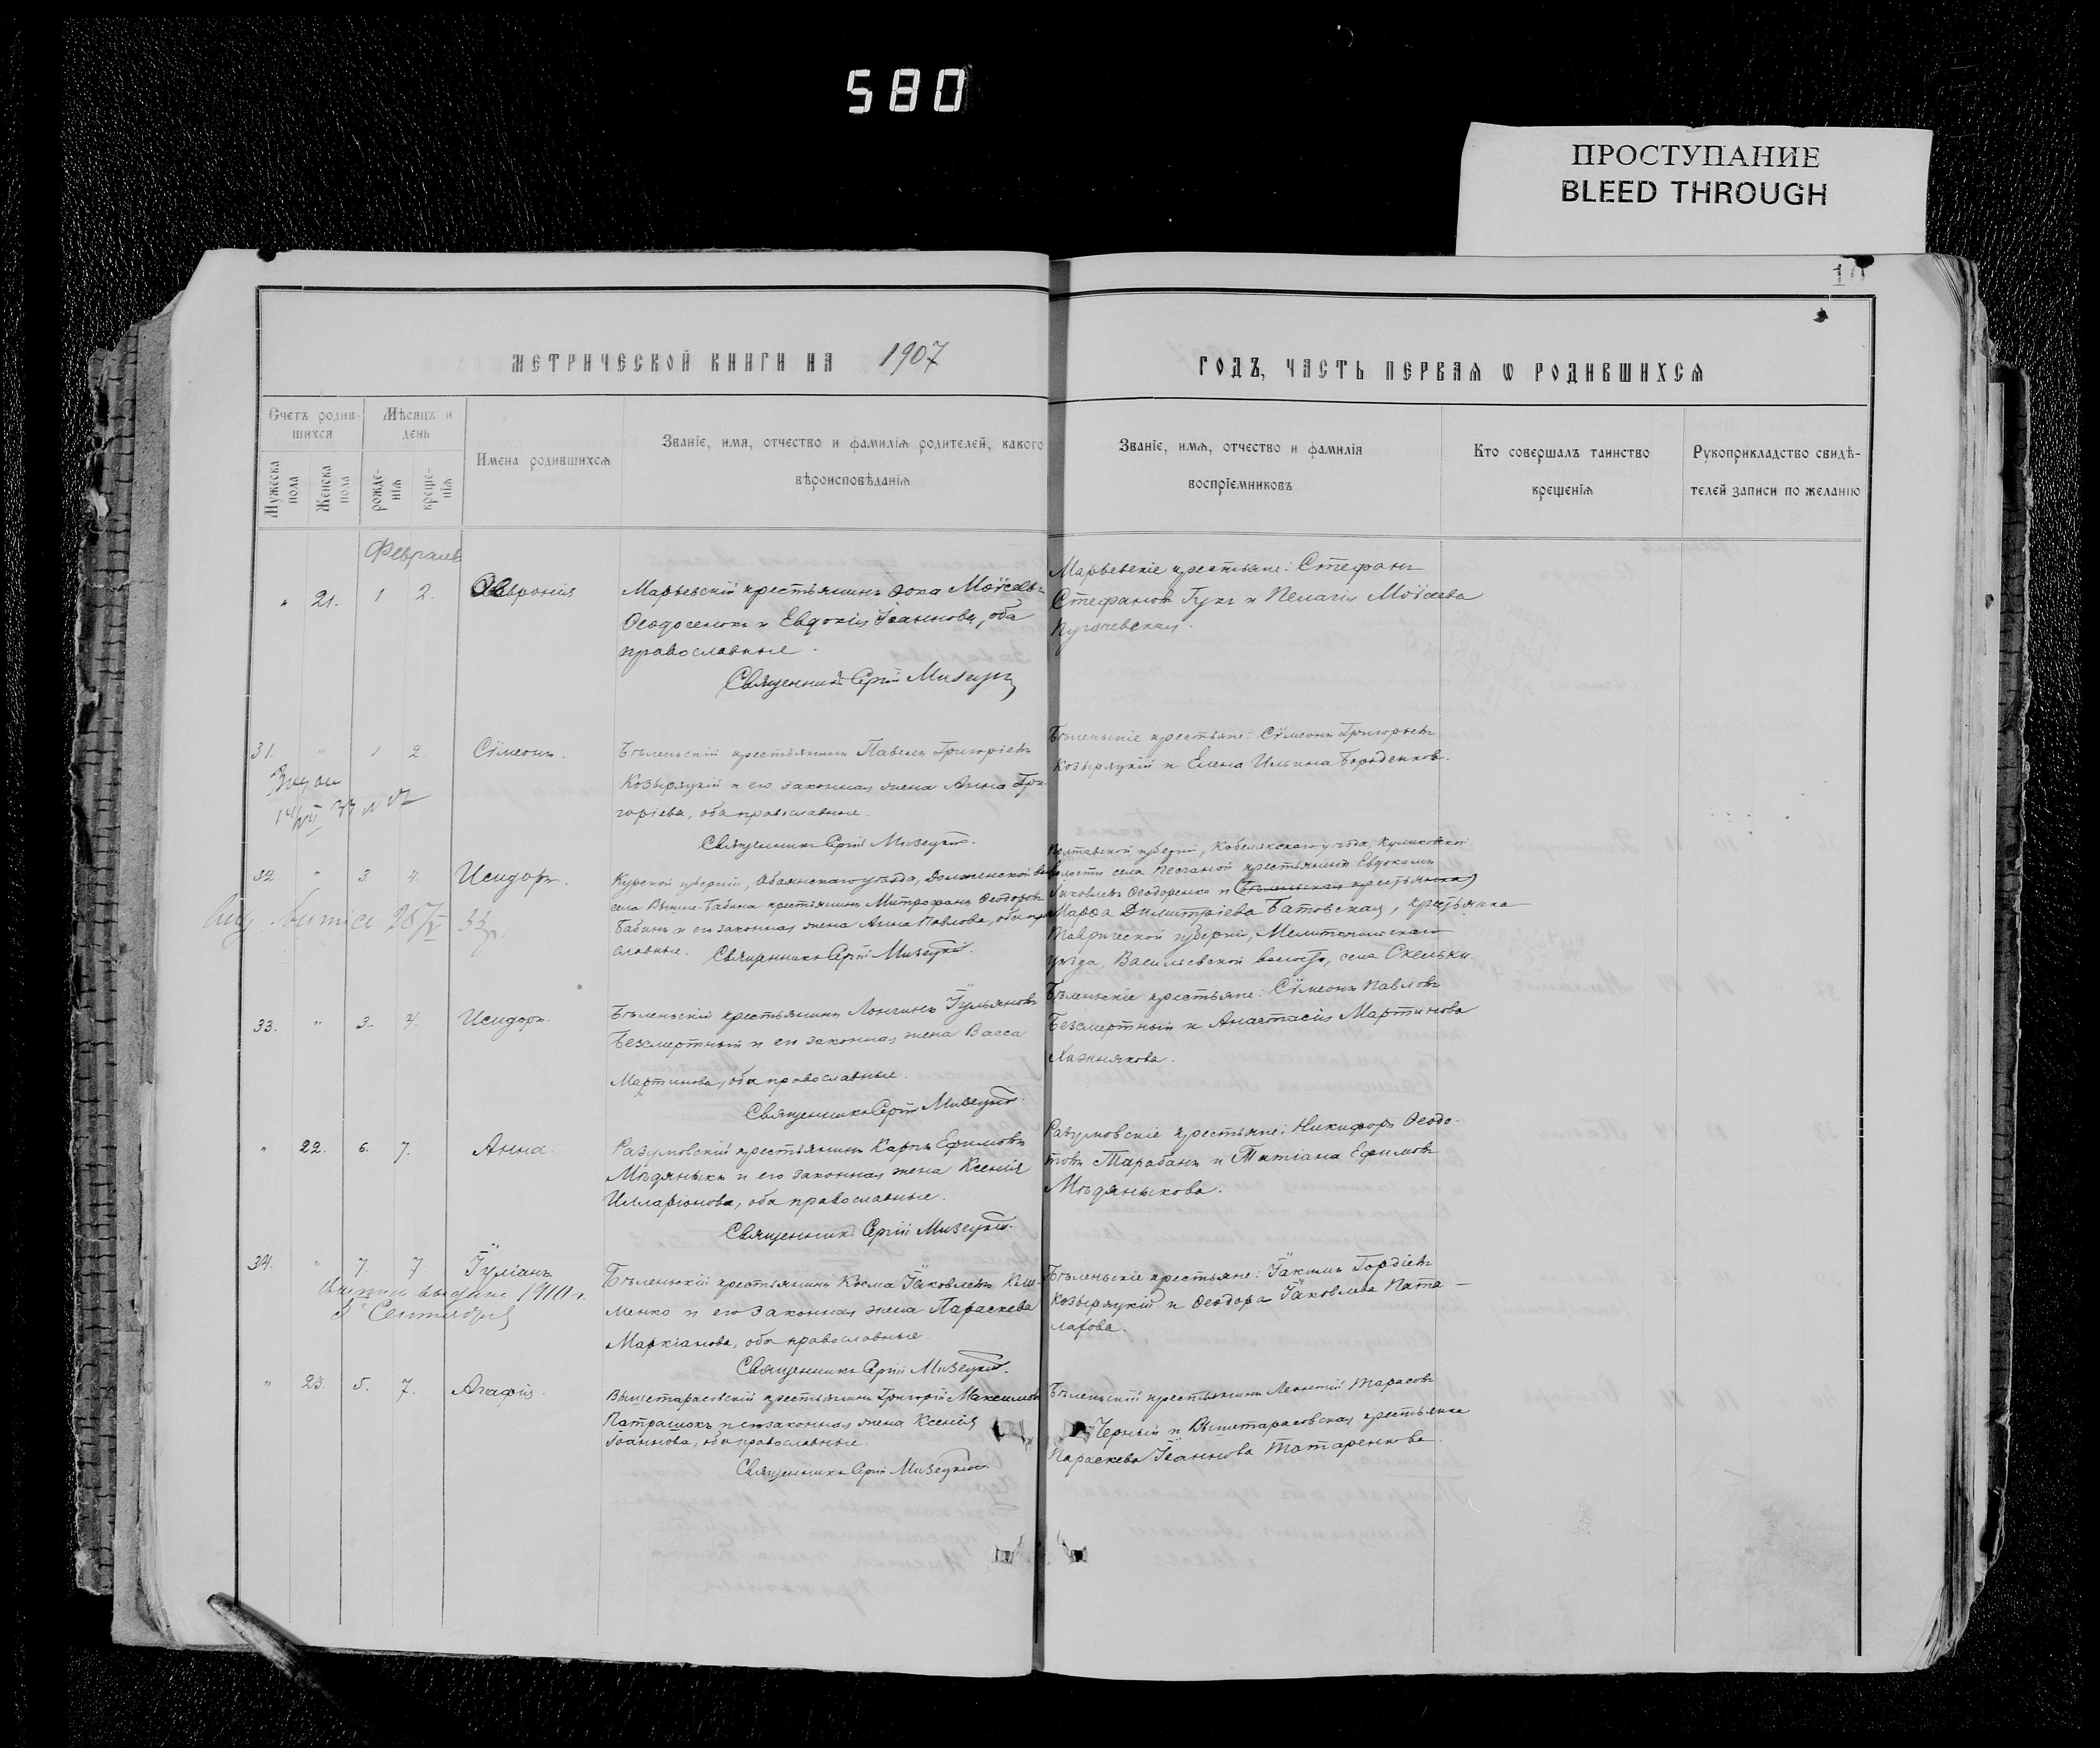 580
ПРОСТУПАНИЕ
BLEED THROUGH
МЕТРИЧЕСКОЙ КНИГИ НА 1907
ГОДЪ, ЧАСТЬ ПЕРВАЯ Ѡ РОДИВШИХСЯ
Счетъ родив-
шихся
Мѣсяцъ и
день
Мужеска
пола
Женска
пола
рожде-
нія
креще-
нія
Имена родившихся
Званіе, имя, отчество и фамилія родителей, какого
вѣроисповѣданія
Званіе, имя, отчество и фамилія
воспріемниковъ
Кто совершалъ таинство
крещенія
Рукоприкладство свидѣ-
телей записи по желанію
Февраль
" 21. 1 2. Ѳеврония
Марьевскій крестьянинъ Ѳока Моѵсеевъ
и Евдокія Іоаннова, оба
православные.
Священникъ Сергій Мизецкій
Марьевскіе крестьяне: Стефанъ
Стефановъ Гукъ и Пелагія Моѵсеева
Пугачевская.
31. " 1 2. Сѵмеонъ.
Бѣленьскій крестьянинъ Павелъ Григоріевъ
Козыряцкій и его законная жена Анна Гри-
горіева, оба православные.
Священникъ Сергій Мизецкій.
Бѣленьскіе крестьяне: Сѵмеонъ Григорьевъ
Козыряцкій и Елена Ильина
32 " 3 4. Исидоръ.
Курской губерніи, Обоянскаго уѣзда,
села крестьянинъ Митрофанъ Ѳеодоровъ
Бабинъ и его законная жена Анна Павлова, оба право-
славные. Священникъ Сергій Мизецкій.
Полтавской губерніи, Кобелякскаго уѣзда,
волости села Песчаной крестьянинъ Евдокимъ
Яковлевъ Ѳеодоренко и (Бѣленьская крестьянка)
Марѳа Димитріева Батовская, крестьянка
Таврической губерніи, Мелитопольскаго
уѣзда, Васильевской волости, села Скельки.
33. " 3. 4. Исидоръ.
Бѣленьскій крестьянинъ Лонгинъ Іульяновъ
Безсмертный и его законная жена Васса
Мартинова, оба православные.
Священникъ Сергій Мизецкій.
Бѣленьскіе крестьяне: Сѵмеонъ Павловъ
Безсмертный и Анастасія Мартинова
" 22. 6. 7. Анна.
Разумовскій крестьянинъ Карпъ Ефимовъ
Мѣдяныкъ и его законная жена Ксенія
Илларіонова, оба православные.
Священникъ Сергій Мизецкій.
Разумовскіе крестьяне: Никифоръ Ѳеодо-
товъ Тарабанъ и Татіана Ефимова
Мѣдяныкова.
34. " 7 7. Іуліанъ
выдана 1910 г.
3 Сентября
Бѣленьскій крестьянинъ Косма Іаковлевъ Кли-
менко и его законная жена Параскева
Маркіанова, оба православные.
Священникъ Сергій Мизецкій.
Бѣленьскіе крестьяне: Іакимъ Гордіевъ
Козыряцкій и Ѳеодора Іаковлева
" 23. 5. 7. Агафія.
Вышетарасовскій крестьянинъ Григорій Максимовъ
и его законная жена Ксенія
Іоаннова, оба православные.
Священникъ Сергій Мизецкій.
Бѣленьскій крестьянинъ Леонтій Тарасовъ
Черный и Вышетарасовская крестьянка
Параскева Іоаннова Татаренкова.